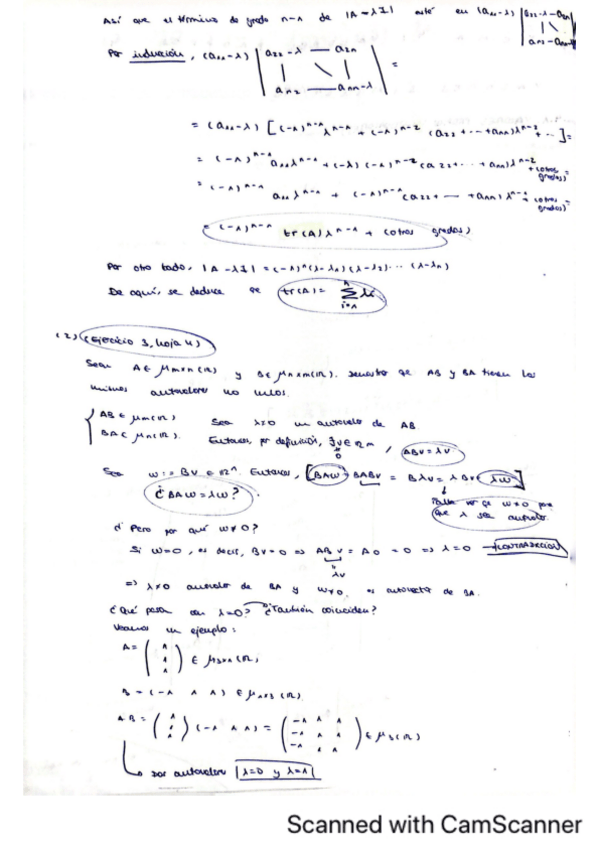 Así que el término de grado n-1 de |A-λI| esté en (a₁₁-λ) |a₂₂-λ — a₂ₙ
| \ |
aₙ₂ — aₙₙ-λ|
Por inducción, (a₁₁-λ) | a₂₂-λ — a₂ₙ
| \ |
aₙ₂ — aₙₙ-λ | =
= (a₁₁-λ) [(-1)ⁿ⁻¹ λⁿ⁻¹ + (-1)ⁿ⁻² (a₂₂+ ··· +aₙₙ)λⁿ⁻² + ··· ] =
= (-1)ⁿ⁻¹ a₁₁λⁿ⁻¹ + (-λ) (-1)ⁿ⁻² (a₂₂+ ··· + aₙₙ)λⁿ⁻² + (otros grados) =
= (-1)ⁿ⁻¹ a₁₁ λⁿ⁻¹ + (-1)ⁿ⁻¹ (a₂₂+ — + aₙₙ) λⁿ⁻¹ + (otros grados) =
= (-1)ⁿ⁻¹ tr(A) λⁿ⁻¹ + (otros grados)
Por otro lado, |A-λI| = (-1)ⁿ(λ-λ₁)(λ-λ₂)··· (λ-λₙ)
De aquí, se deduce qe tr(A) = Σ λi
i=1
(2) (Ejercicio 3, hoja 4)
Sean A ∈ Mmxn(R) y B ∈ Mnxm(R). Demostrar qe AB y BA tienen los
mismos autovalores no nulos.
{ AB ∈ Mm(R) Sea λ≠0 un autovalor de AB
BA ∈ Mn(R). Entonces, por definición, ∃v ∈ Rm, ABv = λv
Sea w := Bv ∈ Rⁿ. Entonces, [BAw = BABv = Bλv = λBv = λw]
¿BAw = λw?
que λ sea autovalor.
¿Pero por qué w≠0?
Si w=0, es decir, Bv=0 ⇒ ABv = A0 = 0 ⇒ λ=0 → CONTRADICCIÓN
λv
⇒ λ≠0 autovalor de BA y w≠0, es autovector de BA.
¿Qué pasa con λ=0? ¿También coinciden?
Veamos un ejemplo:
A = (1 1 1) ∈ M3x1(R),
B = (-1 1 1) ∈ M1x3(R)
AB = (1 1 1) (-1 1 1) = (-1 1 1
-1 1 1
-1 1 1) ∈ M3(R)
→ sus autovalores λ=0 y λ=1
Scanned with CamScanner